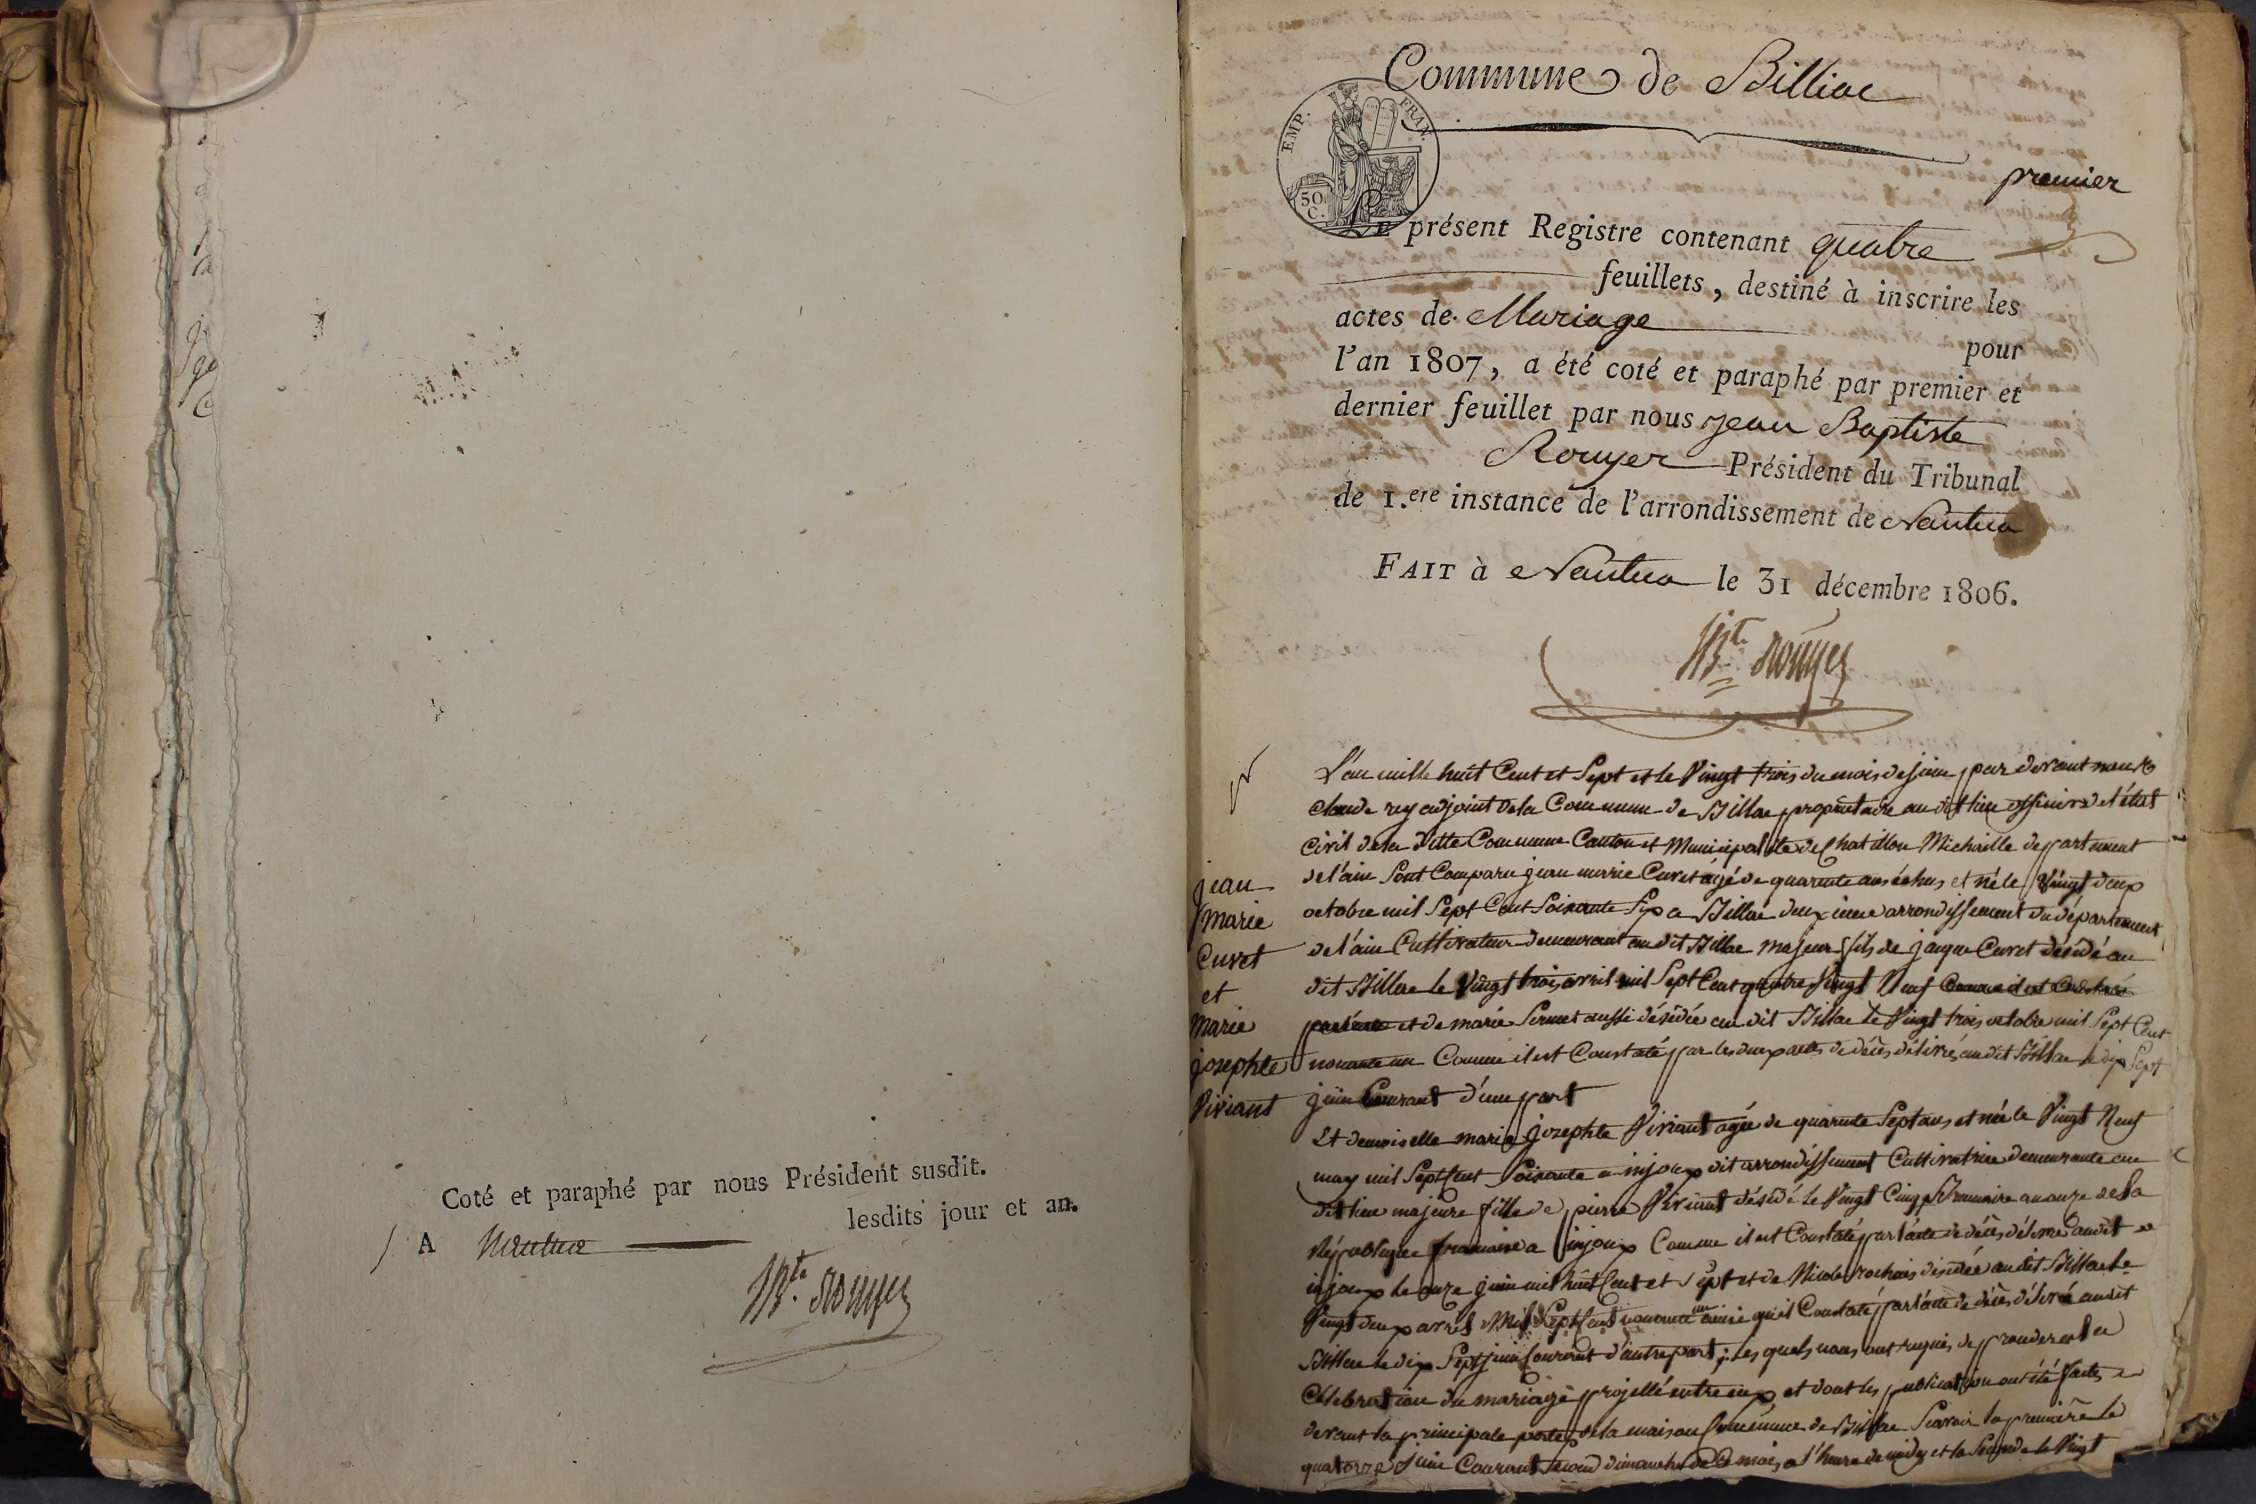 Coté et paraphé par nous Président susdit.
A Nantua lesdits jour et an.
JBte. Rouyer
Commune de Billiac
EMP. FRAN.
50 C.
premier
LE présent Registre contenant quatre
feuillets, destiné à inscrire les
actes de Mariage
pour
l'an 1807, a été coté et paraphé par premier et
dernier feuillet par nous Jean Baptiste
Rouyer Président du Tribunal
de 1.ere instance de l'arrondissement de Nantua
FAIT à Nantua le 31 décembre 1806.
JBte. Rouyer
jean
marie
Curet
et
marie
josephte
Viviant
L'an mille huit Cent et Sept et le Vingt trois du mois de juin par devant nous
claude rey adjoint de la Commune de Billac propriétaire au dit lieu officier de l'état
Civil de la ditte Commune Canton et Municipalité de Chatillon Michaille departement
de l'ain Sont Comparu jean marie Curet agé de quarante ans échus et né le Vingt deux
octobre mil Sept Cent Soixante Six a Billac deuxieme arrondissement du département
de l'ain Cultivateur demeurant au dit Billac majeur fils de jaque Curet désédé au
dit Billac le Vingt trois avril mil Sept Cent quatre Vingt Neuf Comme il est Constaté
et de marie aussi désédée au dit Billac le Vingt trois octobre mil Sept Cent
nonante un Comme il est Constaté par les deux actes de décès délivrés au dit Billac le dix Sept
juin Courant d'une part
Et demoiselle marie josephte Viviant agée de quarante Sept ans et née le Vingt Neuf
may mil Sept Cent Soixante a injoux dit arrondissement Cultivatrice demeurante au
dit lieu majeure fille de pierre Viviant désédé le Vingt Cinq Brumaire an onze de la
République francaise a injoux Comme il est Constaté par l'acte de décès délivré audit
injoux le onze juin mil huit Cent et Sept et de Nicole rochais désédée au dit Billac le
Vingt deux avril Mil Sept Cent nonante un ainsi qu'il Constaté par l'acte de décès délivré audit
Billac le dix Sept juin Courant d'autre part ; les quels nous ont requis de proceder a la
Célébration du mariage projetté entre eux et dont les publication ont été faites
devant la principale porte de la maison Commune de Billac Scavoir la première le
quatorze juin Courant second dimanche de mois a l'heure de midy et la Seconde le Vingt